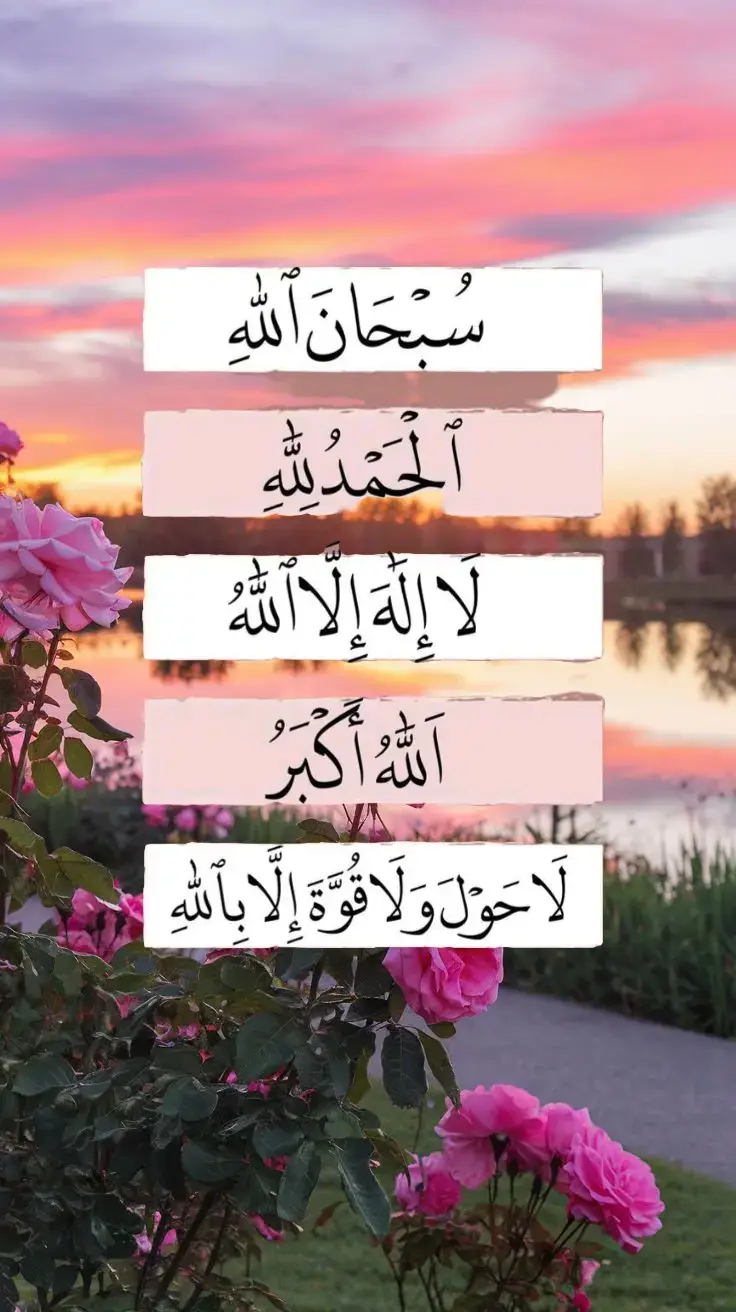 سُبْحَانَ ٱللّٰهِ
ٱلْحَمْدُ لِلّٰهِ
لَا إِلٰهَ إِلَّا ٱللّٰهُ
اَللّٰهُ أَكْبَرُ
لَا حَوْلَ وَلَا قُوَّةَ إِلَّا بِٱللّٰهِ